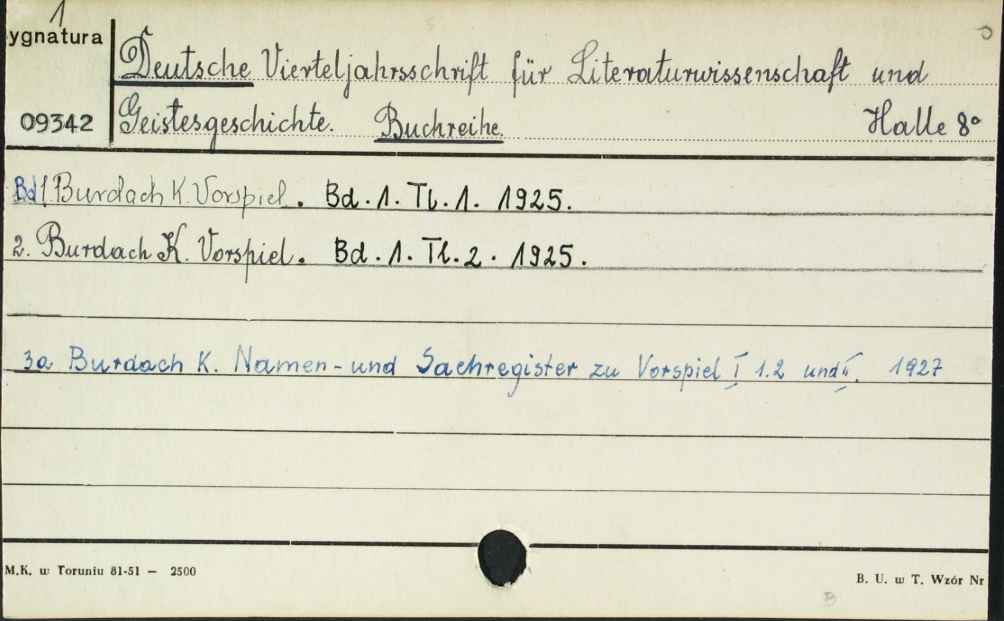 1
ygnatura
09342
Deutsche Vierteljahrsschrift für Literaturwissenschaft und
Geistesgeschichte. Buchreihe. Halle 8°
Bd 1. Burdach K. Vorspiel. Bd. 1. Tl. 1. 1925.
2. Burdach K. Vorspiel. Bd. 1. Tl. 2. 1925.
3a Burdach K. Namen- und Sachregister zu Vorspiel I 1.2 und II. 1927
M.K. w Toruniu 81-51 — 2500
B. U. w T. Wzór Nr
B